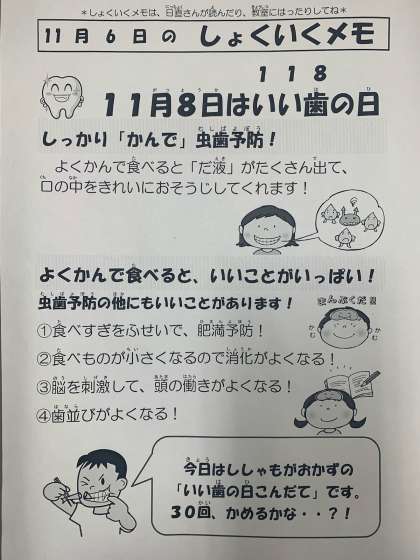 ＊しょくいくメモは、日直さんが読んだり、教室にはったりしてね＊
11月6日の しょくいくメモ
1 1 8
11月8日はいい歯の日
しっかり「かんで」虫歯予防！
よくかんで食べると「だ液」がたくさん出て、
口の中をきれいにおそうじしてくれます！
よくかんで食べると、いいことがいっぱい！
虫歯予防の他にもいいことがあります！
まんぷくだ
かむ
かむ
①食べすぎをふせいで、肥満予防！
②食べものが小さくなるので消化がよくなる！
③脳を刺激して、頭の働きがよくなる！
④歯並びがよくなる！
今日はししゃもがおかずの
「いい歯の日こんだて」です。
30回、かめるかな・・？！